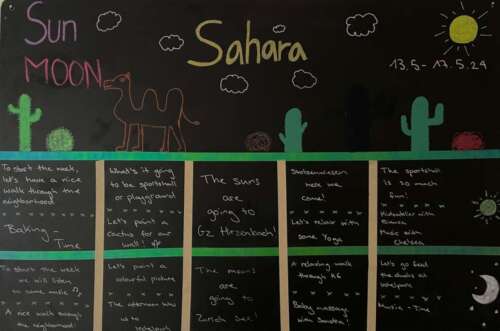 Sun
MOON
Sahara
13.5 - 17.5.24
To start the week,
let's have a nice
walk through the
neighborhood
Baking -
Time
What's it going
to be sportshall
or playground
Let's paint a
cactus for our
wall!
The suns
are
going to
GZ Hirzenbach!
here we
come!
Let's relax with
some Yoga
The sportshall
is so much
fun!
with
Music with
Chelsea
To start the week
we will listen
to some music
A nice walk through
the neighborhood!
Let's paint a
colourful picture
The afternoon
us to
The moons
are
going to
Zürich See!
A relaxing walk
through
Baby massage
with
Let's go feed
the ducks at
Music - Time